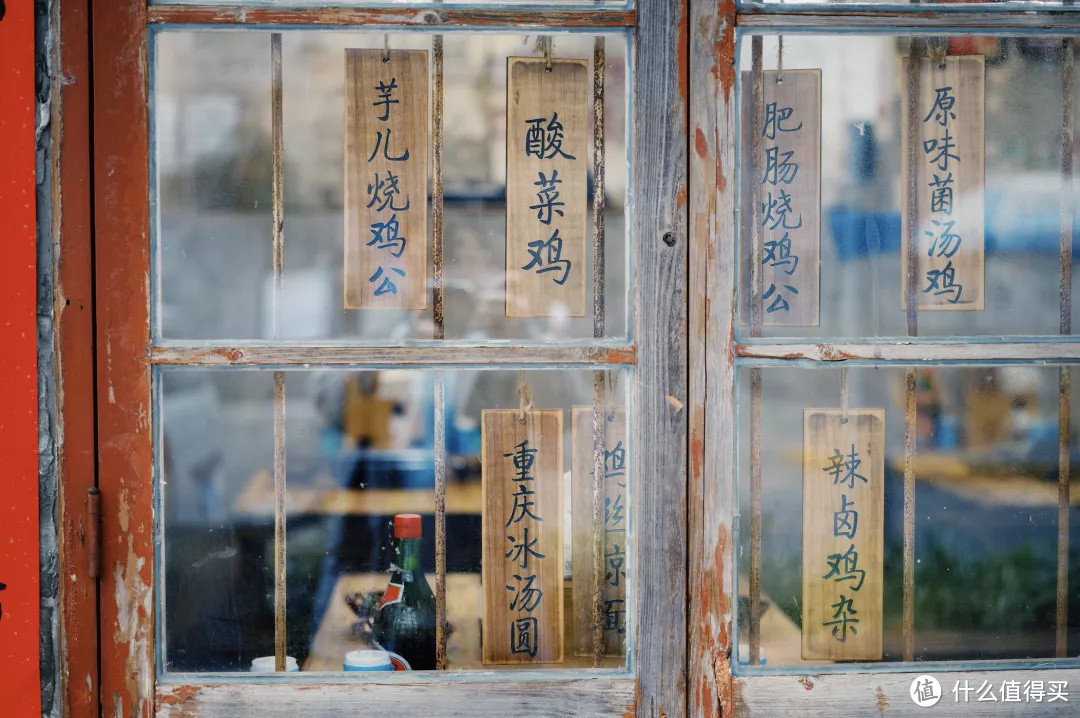 芋儿烧鸡公
酸菜鸡
肥肠烧鸡公
原味菌汤鸡
重庆冰汤圆
鸡丝凉面
辣卤鸡杂
值 什么值得买